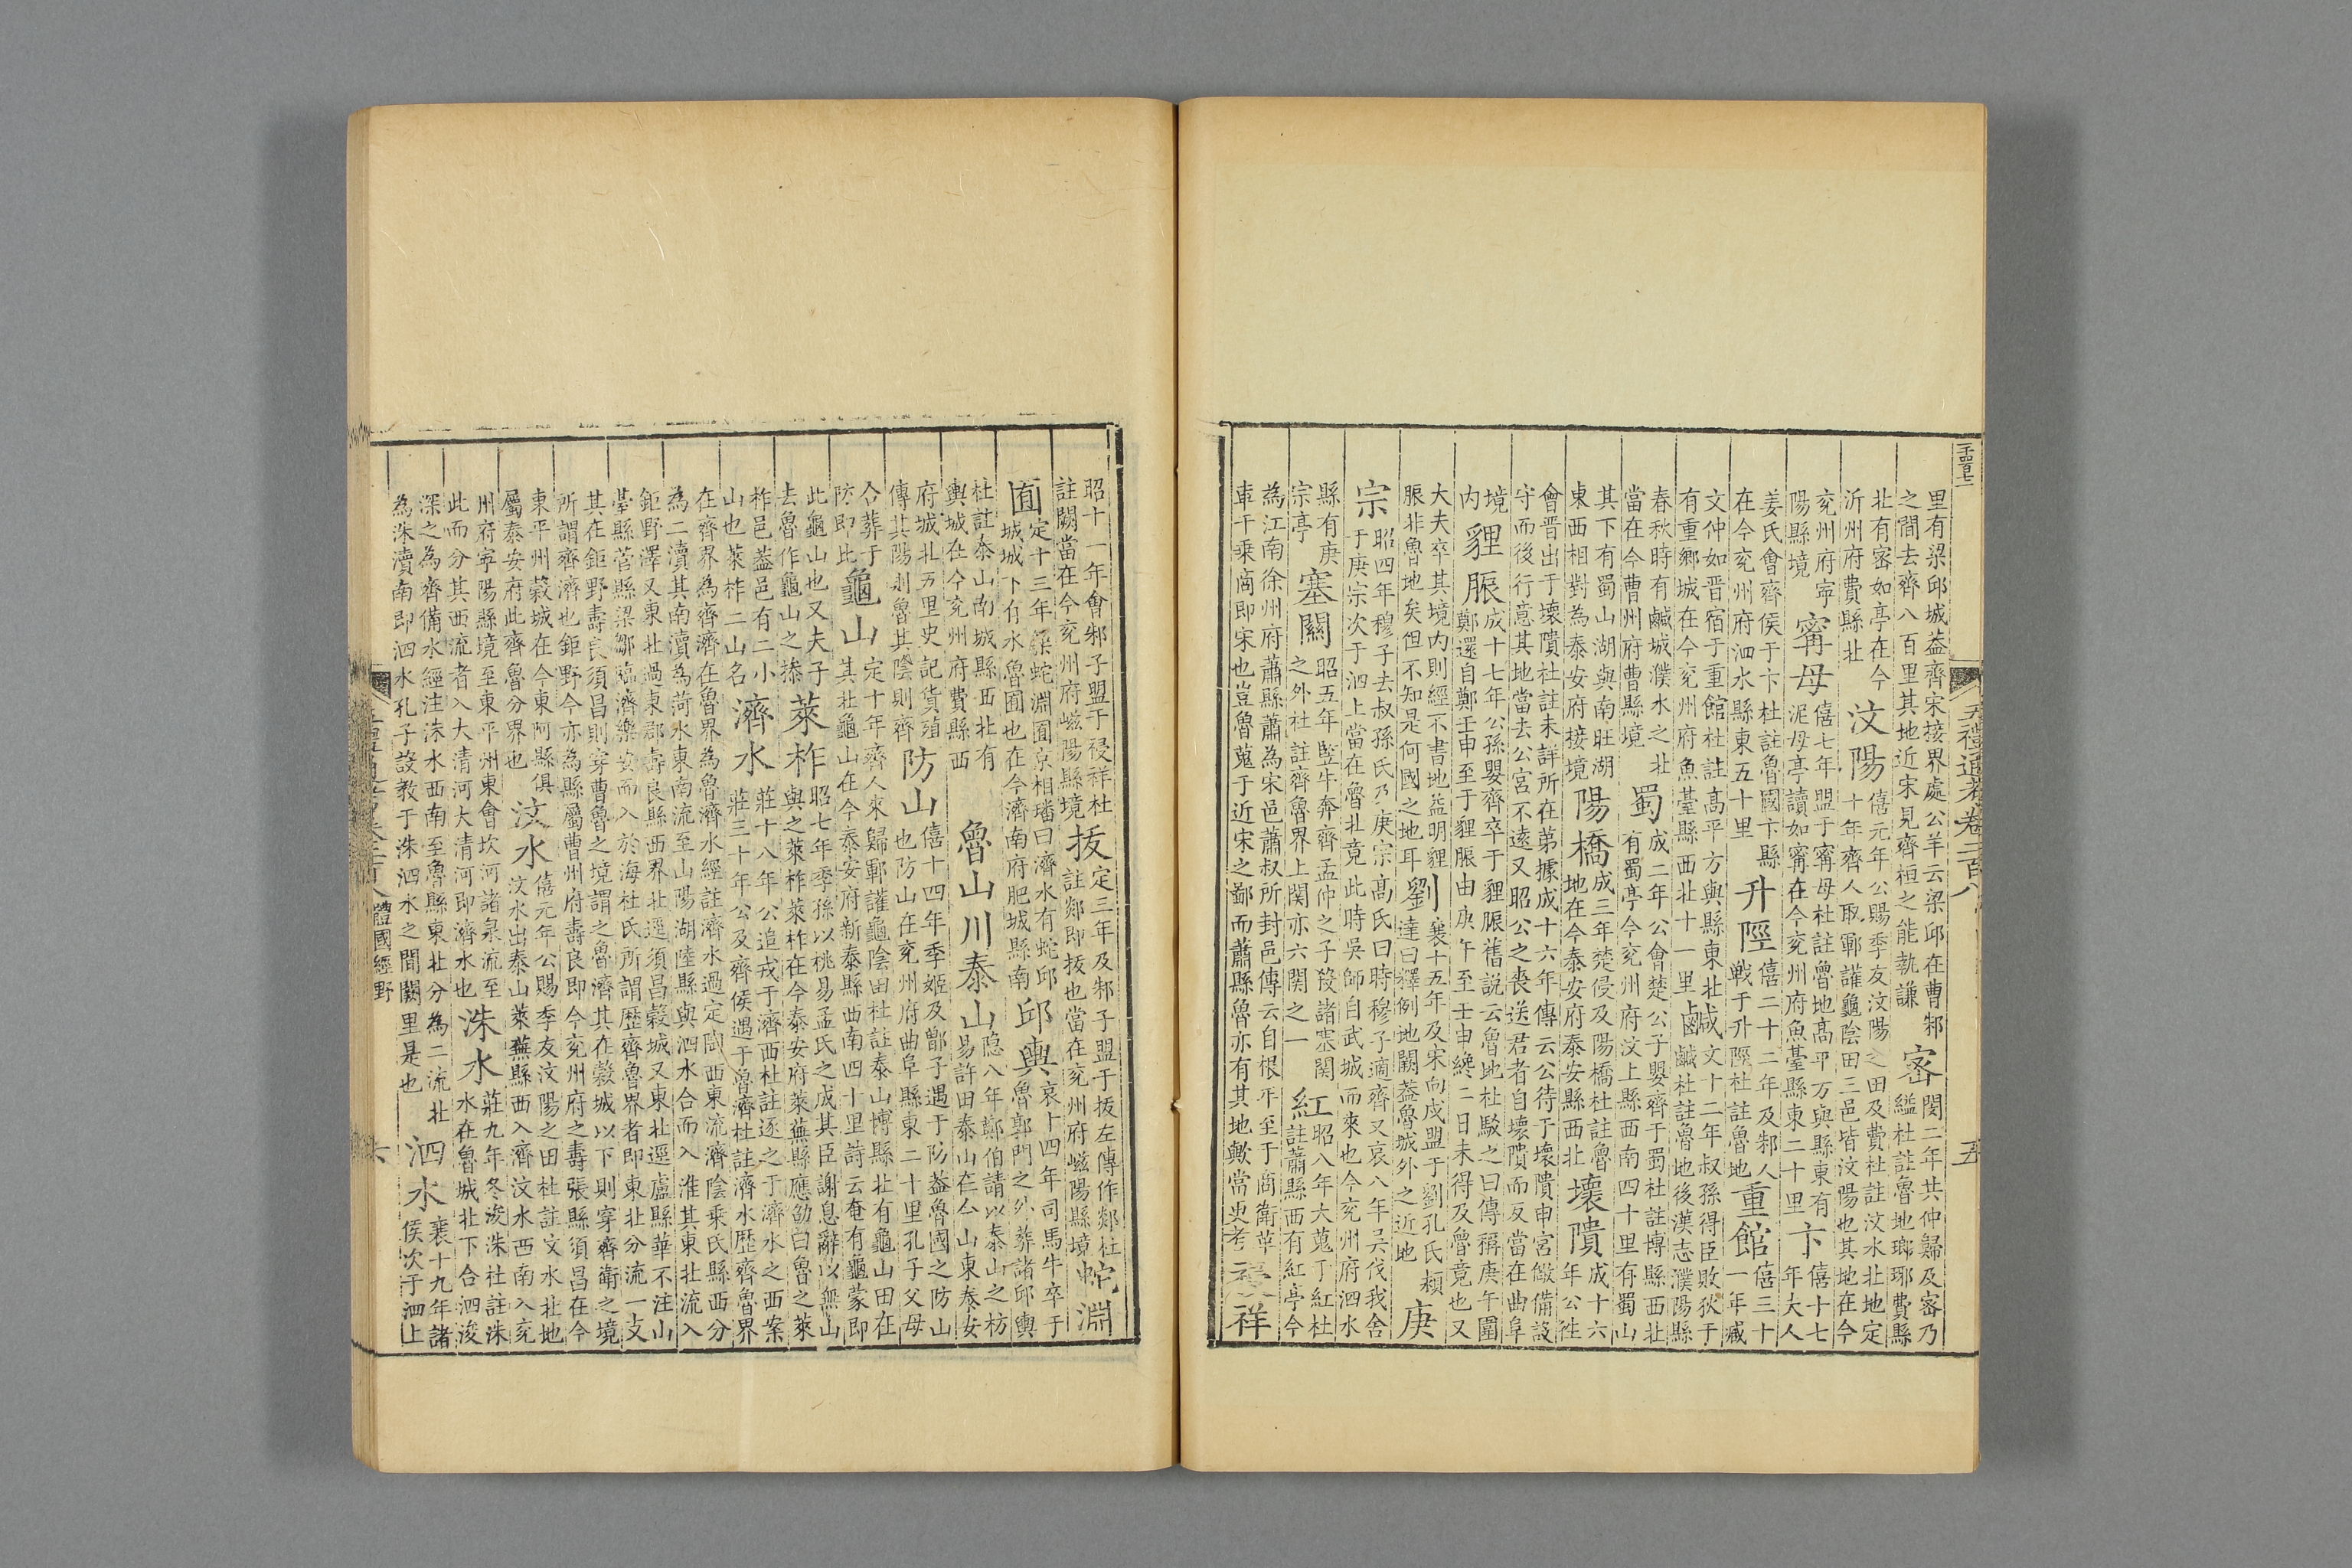 五禮通考卷二百八
五
里有梁邱城葢齊宋接界處公羊云梁邱在曹邾
之間去齊八百里其地近宋見齊桓之能執謙
密 閔二年共仲歸及密乃
縊杜註魯地瑯琊費縣
北有密如亭在今
沂州府費縣北
汶陽 僖元年公賜季友汶陽之田及費杜註汶水北地定
十年齊人取鄆讙龜陰田三邑皆汶陽也其地在今
兖州府寧
陽縣境
寗母 僖七年盟于寗母杜註魯地高平方與縣東有
泥母亭讀如寗在今兖州府魚臺縣東二十里
卞 僖十七
年夫人
姜氏會齊侯于卞杜註魯國卞縣
在今兖州府泗水縣東五十里
升陘 僖二十二年及邾人
戰于升陘杜註魯地
重館 僖三十
一年臧
文仲如晉宿于重館杜註高平方與縣東北
有重鄉城在今兖州府魚臺縣西北十一里
鹹 文十二年叔孫得臣敗狄于
鹹杜註魯地後漢志濮陽縣
春秋時有鹹城濮水之北
當在今曹州府曹縣境
蜀 成二年公會楚公子嬰齊于蜀杜註博縣西北
有蜀亭今兖州府汶上縣西南四十里有蜀山
其下有蜀山湖與南旺湖
東西相對為泰安府接境
陽橋 成三年楚侵及陽橋杜註魯
地在今泰安府泰安縣西北
壞隤 成十六
年公徃
會晉出于壞隤杜註未詳所在第據成十六年傳云公待于壞隤申宮儆備設
守而後行意其地當去公宮不遠又昭公之喪送君者自壞隤而反當在曲阜
境
内
貍脤 成十七年公孫嬰齊卒于貍脤舊説云魯地杜駁之曰傳稱庚午圍
鄭還自鄭壬申至于貍脤由庚午至壬申纔二日未得及魯竟也又
大夫卒其境内則經不書地益明貍
脤非魯地矣但不知是何國之地耳
劉 襄十五年及宋向戌盟于劉孔氏穎
達曰釋例地闕葢魯城外之近地
庚
宗 昭四年穆子去叔孫氏乃庚宗高氏曰時穆子適齊又哀八年吴伐我舍
于庚宗次于泗上當在魯北竟此時吳師自武城而來也今兖州府泗水
縣有庚
宗亭
塞關 昭五年竪牛奔齊孟仲之子殺諸塞関
之外杜註齊魯界上関亦六関之一
紅 昭八年大蒐于紅杜
註蕭縣西有紅亭今
為江南徐州府蕭縣蕭為宋邑蕭叔所封邑傳云自根牟至于商衛革
車千乘商即宋也豈魯蒐于近宋之鄙而蕭縣魯亦有其地歟常更考
祲祥
昭十一年會邾子盟于祲祥杜
註闕當在今兖州府嵫陽縣境
拔 定三年及邾子盟于拔左傳作郯杜
註郯即拔也當在兖州府嵫陽縣境
蛇淵
囿 定十三年築蛇淵囿京相璠曰濟水有蛇邱
城城下有水魯囿也在今濟南府肥城縣南
邱輿 哀十四年司馬牛卒于
魯郭門之外葬諸邱輿
杜註泰山南城縣西北有
輿城在今兖州府費縣西
魯山川
泰山 隐八年鄭伯請以泰山之祊
易許田泰山在今山東泰安
府城北五里史記貨殖
傳其陽則魯其陰則齊
防山 僖十四年季姬及鄫子遇于防葢魯國之防山
也防山在兖州府曲阜縣東二十里孔子父母
合葬于
防即此
龜山 定十年齊人來歸鄆讙龜陰田杜註泰山博縣北有龜山田在
其北龜山在今泰安府新泰縣西南四十里詩云奄有龜蒙即
此龜山也又夫子
去魯作龜山之操
萊柞 昭七年季孫以桃易孟氏之成其臣謝息辭以無山
與之萊柞萊柞在今泰安府萊蕪縣應劭曰魯之萊
柞邑葢邑有二小
山也萊柞二山名
濟水 莊十八年公追戎于濟西杜註逐之于濟水之西案
莊三十年公及齊侯遇于魯濟杜註濟水歴齊魯界
在齊界為齊濟在魯界為魯濟水經註濟水過定陶西東流濟陰乘氏縣西分
為二瀆其南瀆為菏水東南流至山陽湖陸縣與泗水合而入淮其東北流入
鉅野澤又東北過東郡壽良縣西界北逕須昌穀城又東北逕盧縣華不注山
臺縣菅縣梁鄒臨濟樂安而入於海杜氏所謂歴齊魯界者即東北分流一支
其在鉅野壽良須昌則穿曹魯之境謂之魯濟其在穀城以下則穿齊衛之境
所謂齊濟也鉅野今亦為縣屬曹州府壽良即今兖州府之壽張縣須昌在今
東平州穀城在今東阿縣俱
屬泰安府此齊魯分界也
汶水 僖元年公賜季友汶陽之田杜註汶水北地
汶水出泰山萊蕪縣西入濟汶水西南入兖
州府寧陽縣境至東平州東會坎河諸泉流至
此而分其西流者入大清河大清河即濟水也
洙水 莊九年冬浚洙杜註洙
水在魯城北下合泗浚
深之為齊備水經注洙水西南至魯縣東北分為二流北
為洙瀆南即泗水孔子設教于洙泗水之間闕里是也
泗水 襄十九年諸
侯次于泗上
體國經野
六